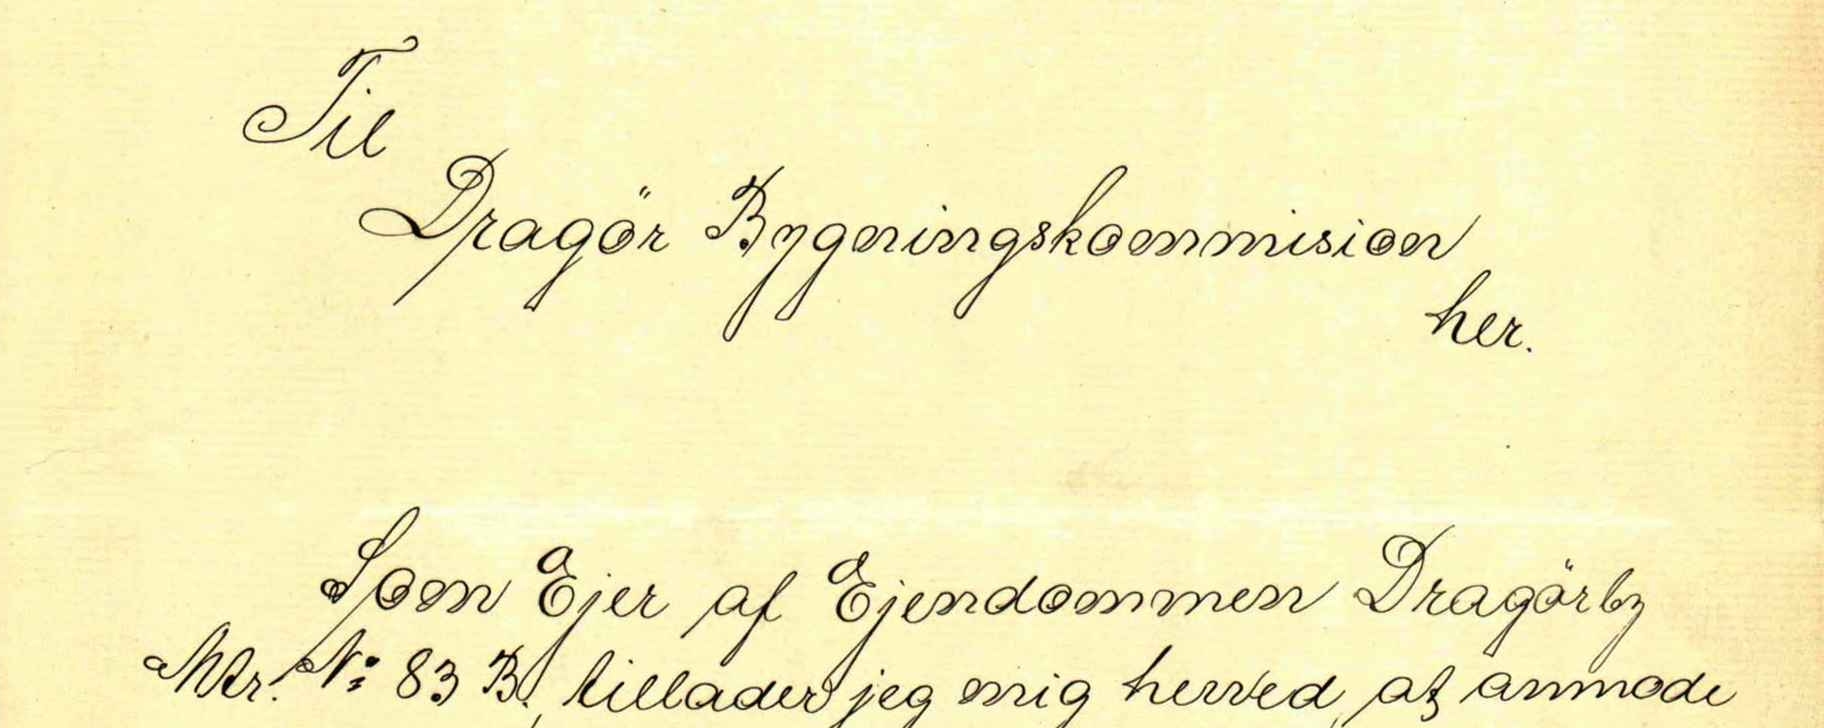 Til
Dragör Bygningskommision
her.
Som Ejer af Ejendommen Dragörby
Mtr. No: 83 B, tillader jeg mig herved, at anmode